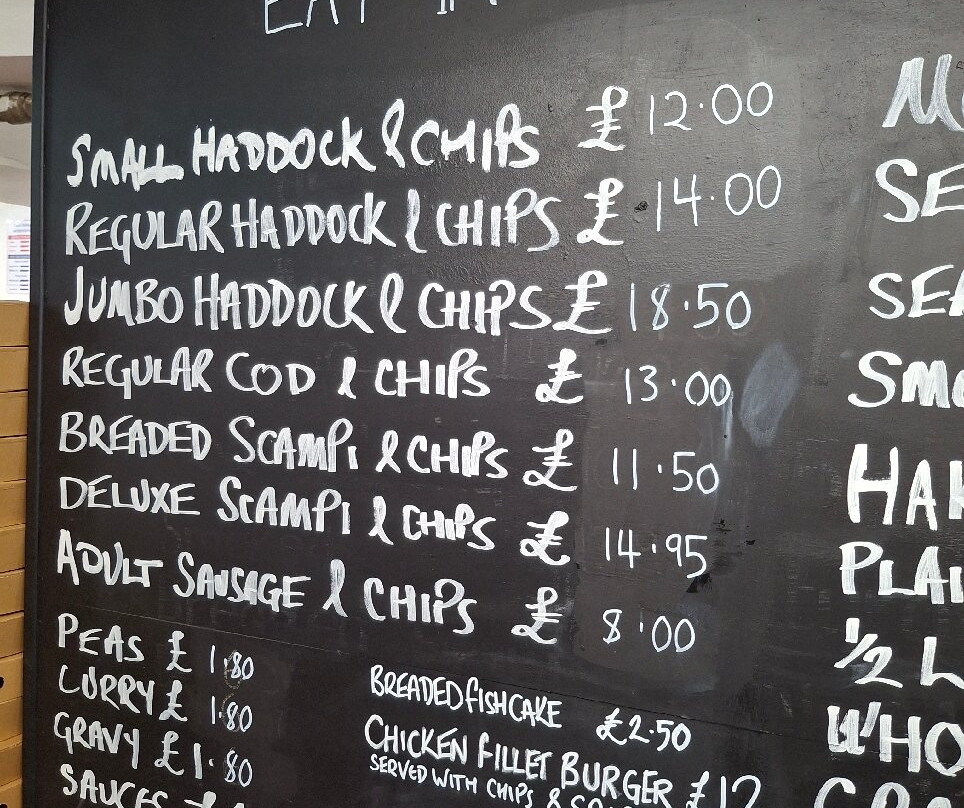 EAT IN
SMALL HADDOCK & CHIPS £ 12.00
REGULAR HADDOCK & CHIPS £ 14.00
JUMBO HADDOCK & CHIPS £ 18.50
REGULAR COD & CHIPS £ 13.00
BREADED SCAMPI & CHIPS £ 11.50
DELUXE SCAMPI & CHIPS £ 14.95
ADULT SAUSAGE & CHIPS £ 8.00
PEAS £ 1.80
CURRY £ 1.80
GRAVY £ 1.80
SAUCES
BREADED FISHCAKE £2.50
CHICKEN FILLET BURGER £12
SERVED WITH CHIPS &
1/2